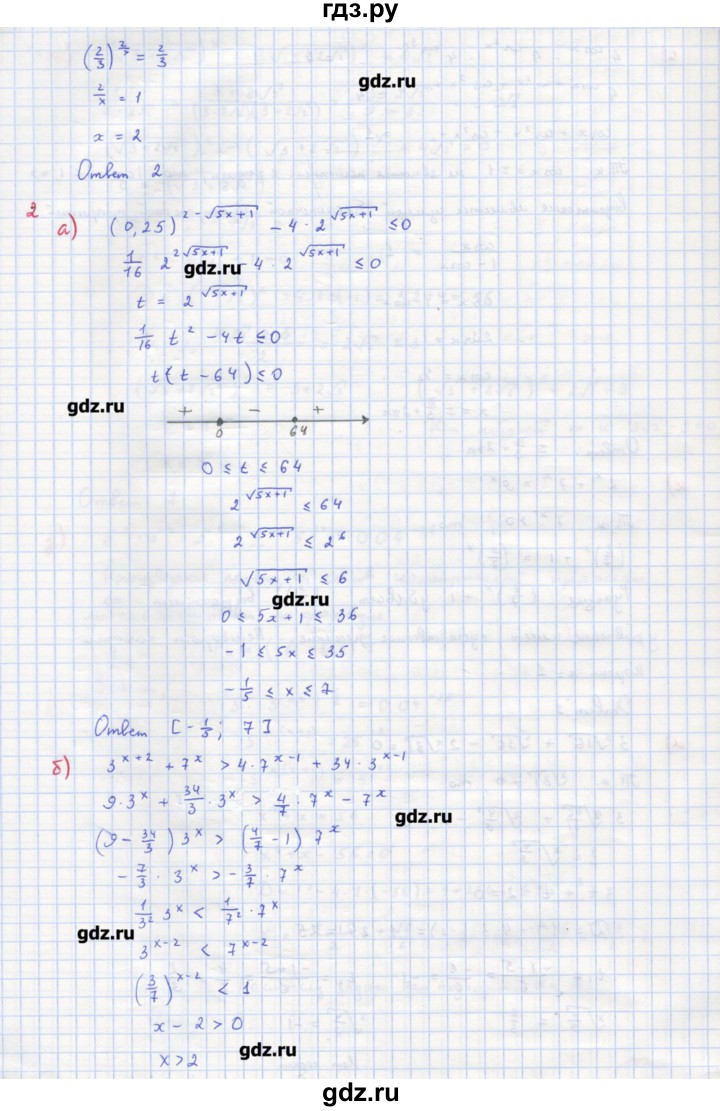 гдз.ру
(2/3)^(2/x) = 2/3
gdz.ru
2/x = 1
x = 2
Ответ 2
2
а) (0,25)^(2 - √(5x+1)) - 4 · 2^(√(5x+1)) ≤ 0
1/16 2^(2√(5x+1)) - 4 · 2^(√(5x+1)) ≤ 0
gdz.ru
t = 2^(√(5x+1))
1/16 t² - 4t ≤ 0
t(t - 64) ≤ 0
gdz.ru
+ - +
0 64
0 ≤ t ≤ 64
2^(√(5x+1)) ≤ 64
2^(√(5x+1)) ≤ 2^6
√(5x+1) ≤ 6
gdz.ru
0 ≤ 5x + 1 ≤ 36
-1 ≤ 5x ≤ 35
-1/5 ≤ x ≤ 7
Ответ [-1/5; 7]
б) 3^(x+2) + 7^x > 4 · 7^(x-1) + 34 · 3^(x-1)
9 · 3^x + 34/3 · 3^x > 4/7 · 7^x - 7^x
gdz.ru
(9 - 34/3) 3^x > (4/7 - 1) 7^x
-7/3 · 3^x > -3/7 · 7^x
1/3² 3^x < 1/7² · 7^x
gdz.ru
3^(x-2) < 7^(x-2)
(3/7)^(x-2) < 1
x - 2 > 0
gdz.ru
x > 2
gdz.ru